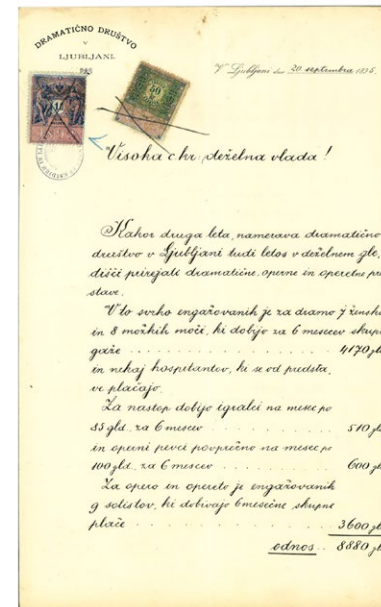 DRAMATIČNO DRUŠTVO
V
LJUBLJANI.
V Ljubljani dne 20. septembra 1895.
Visoka c. kr. deželna vlada!
Kakor druga leta, namerava dramatično
društvo v Ljubljani tudi letos v deželnem gle,
dišči prirejati dramatične, operne in operetne pred
stave.
V to svrho engažovanih je za dramo 7 žensk
in 8 možkih moči, ki dobijo za 6 mesecev skup
gaže 4170 gl
in nekaj hospitantov, ki se od predsta,
ve plačajo.
Za nastop dobijo igralci na mesec po
85 gld. za 6 mesecev 510 gl
in operni pevci povprečno na mesec po
100 gld. za 6 mesecev 600 gl
Za opero in opereto je engažovanih
9 solistov, ki dobivajo 6mesečne skupne
plače 3600 gl
odnos 8880 gl